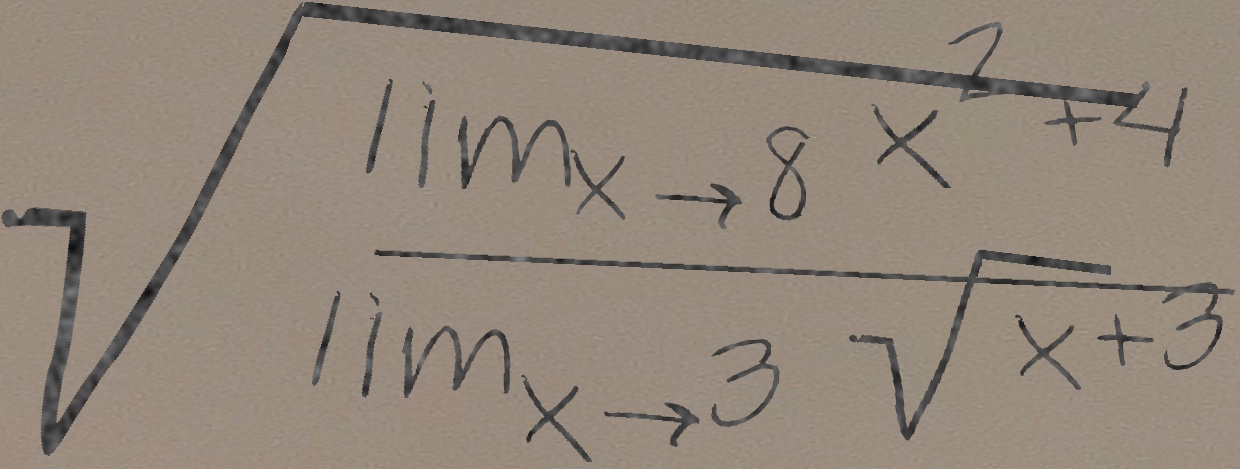 √ lim x → 8 x² + 4
lim x → 3 √ x + 3